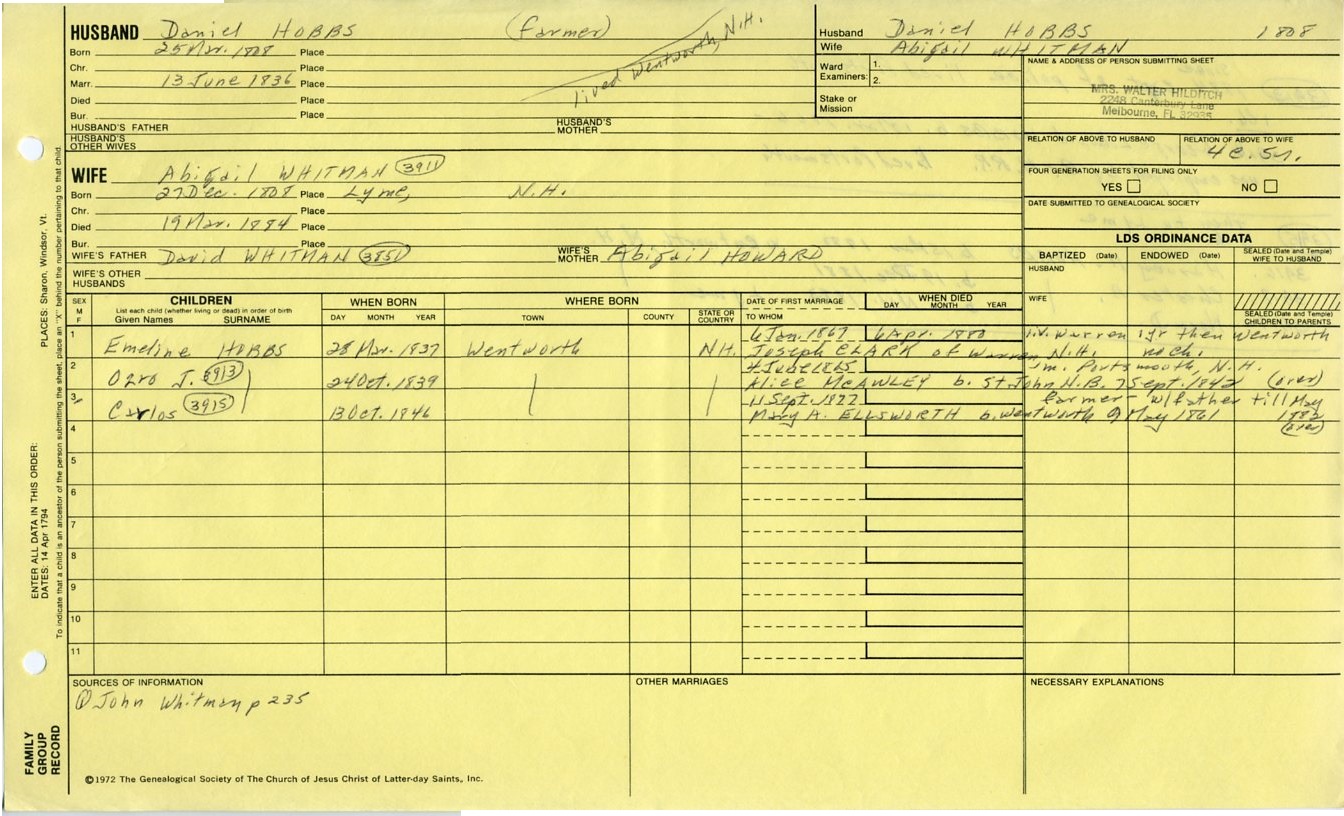 HUSBAND Daniel HOBBS (farmer)
Born 25 Mar. 1808 Place
Chr. Place
Marr. 13 June 1836 Place
Died Place
Bur. Place
lived Wentworth, N.H.
HUSBAND'S FATHER
HUSBAND'S MOTHER
HUSBAND'S OTHER WIVES
WIFE Abigail WHITMAN 3911
Born 27 Dec. 1808 Place Lyme, N.H.
Chr. Place
Died 19 Mar. 1884 Place
Bur. Place
WIFE'S FATHER David WHITMAN
WIFE'S MOTHER Abigail HOWARD
WIFE'S OTHER HUSBANDS
Husband Daniel HOBBS 1808
Wife Abigail WHITMAN
Ward Examiners: 1.
2.
Stake or Mission
NAME & ADDRESS OF PERSON SUBMITTING SHEET
MRS. WALTER HILDITCH
2248 Canterbury Lane
Melbourne, FL 32935
RELATION OF ABOVE TO HUSBAND
RELATION OF ABOVE TO WIFE
FOUR GENERATION SHEETS FOR FILING ONLY
YES NO
DATE SUBMITTED TO GENEALOGICAL SOCIETY
LDS ORDINANCE DATA
BAPTIZED (Date) ENDOWED (Date) SEALED (Date and Temple) WIFE TO HUSBAND
HUSBAND
WIFE
SEALED (Date and Temple) CHILDREN TO PARENTS
SEX M F
CHILDREN
List each child (whether living or dead) in order of birth
Given Names SURNAME
WHEN BORN
DAY MONTH YEAR
WHERE BORN
TOWN COUNTY STATE OR COUNTRY
DATE OF FIRST MARRIAGE
TO WHOM
WHEN DIED
DAY MONTH YEAR
1 Emeline HOBBS 28 Mar. 1837 Wentworth NH.
6 Jan. 1867 6 Apr. 1880 liv. Warren 1yr then Wentworth
Joseph CLARK of Warren N.H. no ch.
2 Ozro J. 3913 24 Oct. 1839
4 June 1865 m. Portsmouth, N.H.
Alice McAWLEY b. St John N.B. 7 Sept. 1842 (over)
3 Carlos 3915 13 Oct. 1846
11 Sept. 1877 farmer - w/father till May 1882
Mary A. ELLSWORTH b. Wentworth 9 May 1861 (over)
4
5
6
7
8
9
10
11
SOURCES OF INFORMATION
John Whitman p 235
OTHER MARRIAGES
NECESSARY EXPLANATIONS
©1972 The Genealogical Society of The Church of Jesus Christ of Latter-day Saints, Inc.
FAMILY GROUP RECORD
ENTER ALL DATA IN THIS ORDER:
DATES: 14 Apr 1794 PLACES: Sharon, Windsor, Vt.
To indicate that a child is an ancestor of the person submitting the sheet, place an "X" behind the number pertaining to that child.